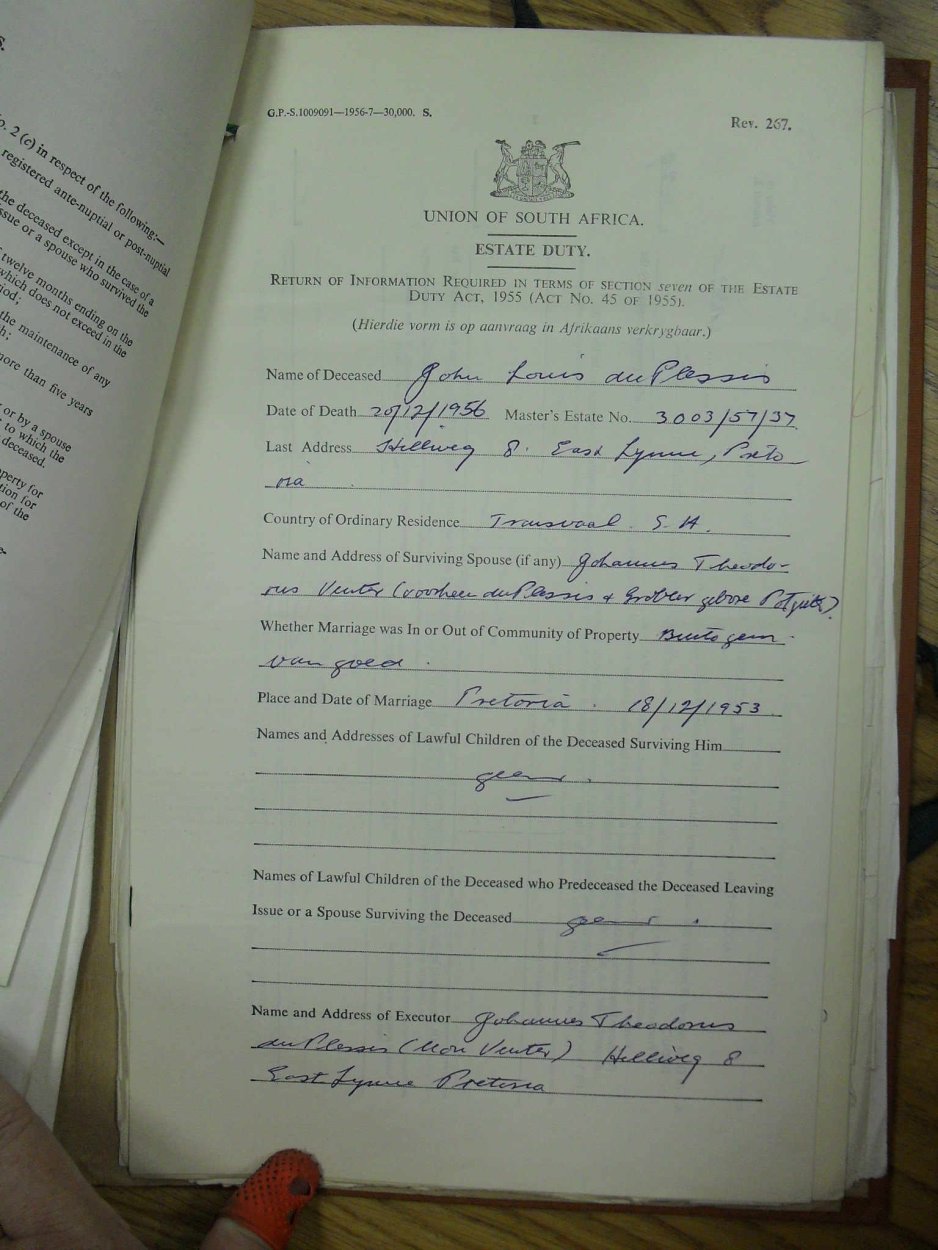 S.
No. 2 (c) in respect of the following:—
registered ante-nuptial or post-nuptial
the deceased except in the case of a
issue or a spouse who survived the
twelve months ending on the
which does not exceed in the
the maintenance of any
more than five years
or by a spouse
to which the
deceased.
for
of the
G.P.-S.1009091—1956-7—30,000. S.
Rev. 267.
UNION OF SOUTH AFRICA.
ESTATE DUTY.
RETURN OF INFORMATION REQUIRED IN TERMS OF SECTION seven OF THE ESTATE
DUTY ACT, 1955 (ACT NO. 45 OF 1955).
(Hierdie vorm is op aanvraag in Afrikaans verkrygbaar.)
Name of Deceased John Louis du Plessis
Date of Death 20/12/1956 Master's Estate No. 3003/57/37
Last Address Hellweg 8. East Lynne, Preto
ria
Country of Ordinary Residence Transvaal. S.A.
Name and Address of Surviving Spouse (if any) Johannes Theodo-
rus Venter (voorheen du Plessis + Grobler gebore Potgieter)
Whether Marriage was In or Out of Community of Property Buite gem.
van goed.
Place and Date of Marriage Pretoria. 18/12/1953
Names and Addresses of Lawful Children of the Deceased Surviving Him
geen.
Names of Lawful Children of the Deceased who Predeceased the Deceased Leaving
Issue or a Spouse Surviving the Deceased geen.
Name and Address of Executor Johannes Theodorus
du Plessis (Nou Venter) Hellweg 8
East Lynne Pretoria